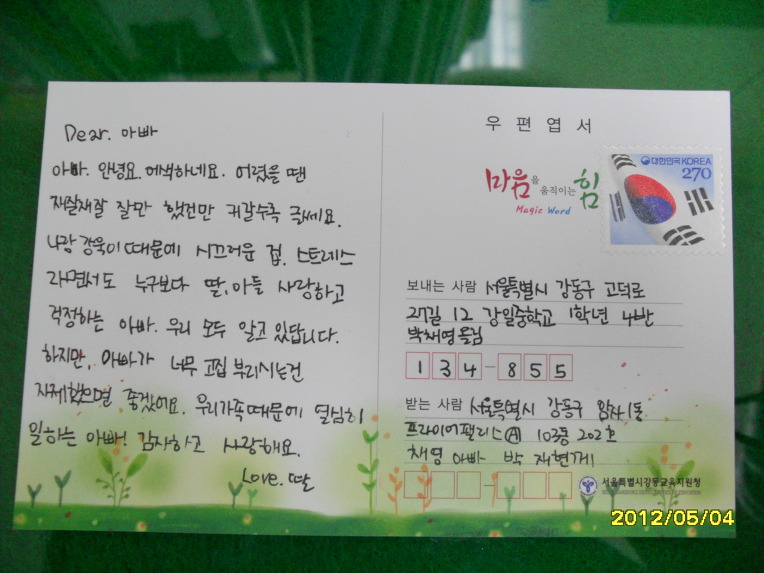 Dear. 아빠
아빠. 안녕요. 어색하네요. 어렸을 땐
재잘재잘 잘만 했건만 커갈수록 글세요.
나랑 강욱이 때문에 시끄러운 집. 스트레스
라면서도 누구보다 딸, 아들 사랑하고
걱정하는 아빠. 우리 모두 알고 있답니다.
하지만, 아빠가 너무 고집 부리시는건
자제했으면 좋겠어요. 우리가족때문에 열심히
일하는 아빠! 감사하고 사랑해요.
Love. 딸
우편엽서
마음을 움직이는 힘
Magic Word
대한민국 KOREA
270
보내는 사람 서울특별시 강동구 고덕로
27길 12 강일중학교 1학년 4반
박채영올림
134-855
받는 사람 서울특별시 강동구 암사1동
프라이어팰리스Ⓐ 103동 202호
채영 아빠 박재현께
서울특별시강동교육지원청
2012/05/04